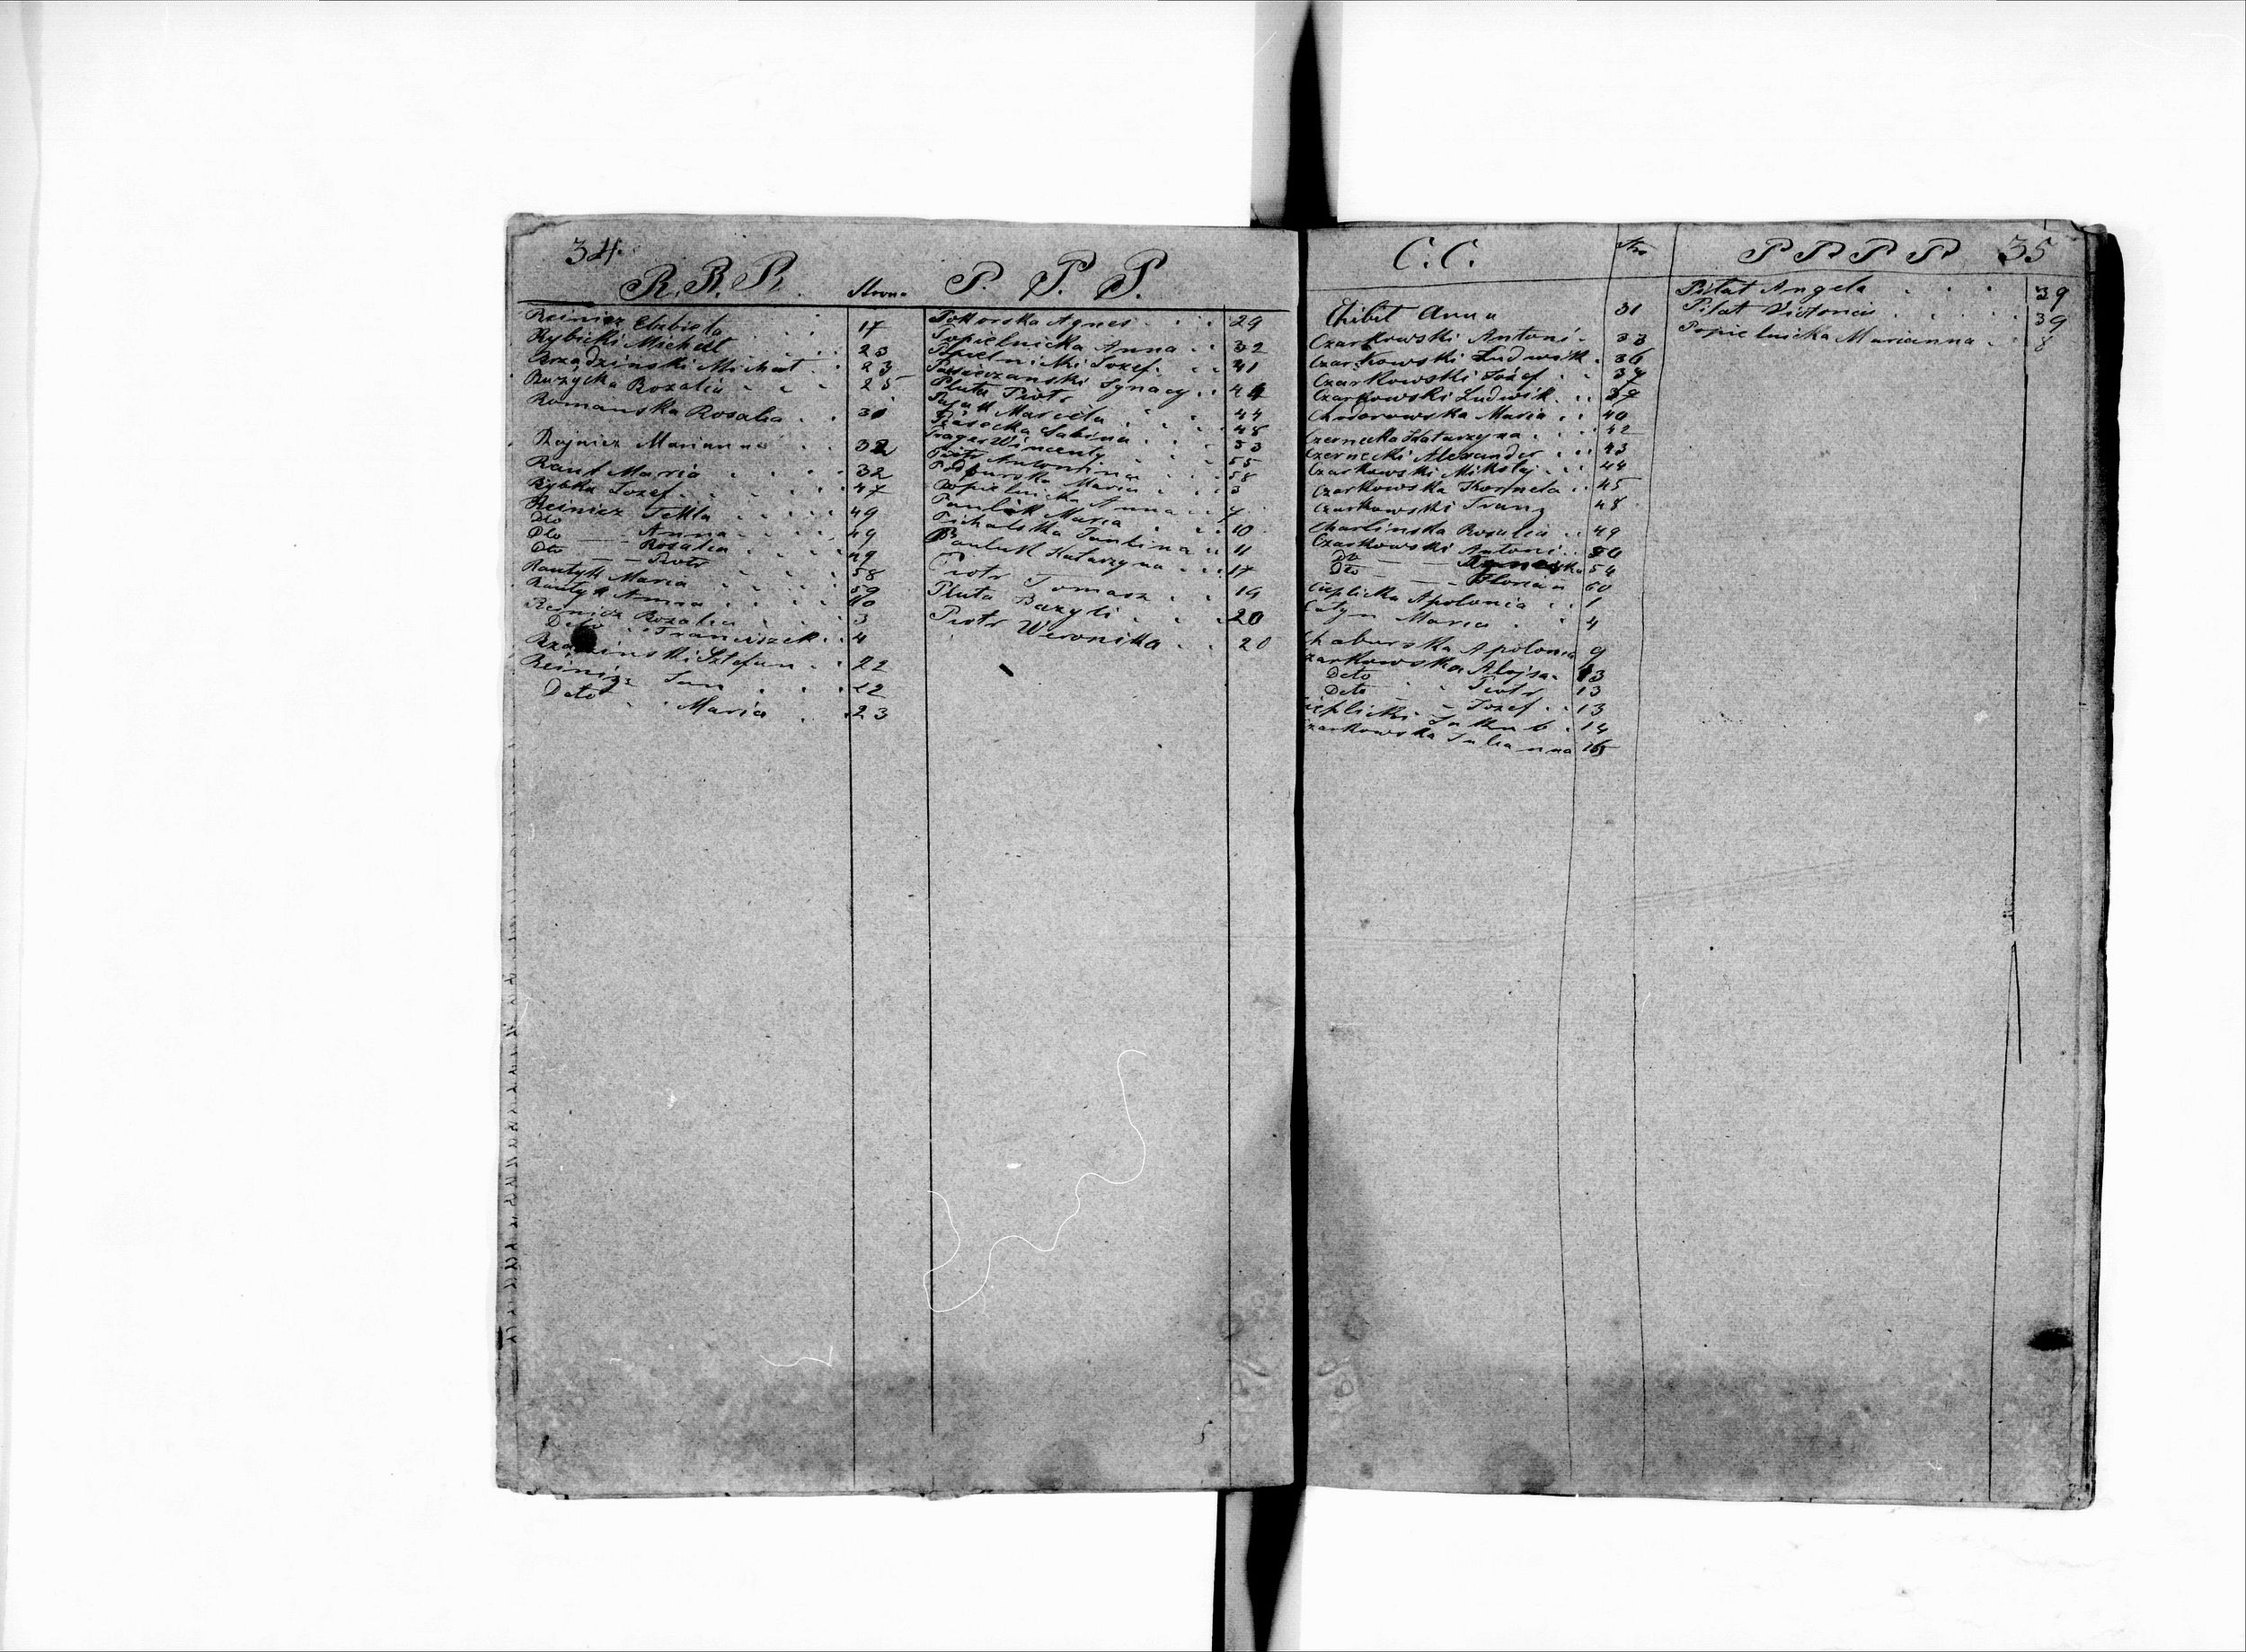 34.
R. R. R. Strona
Reinicz Elzbieta 17
Rybicki Michał 23
Brządzinski Michał 23
Ruzycka Rozalia 25
Romańska Rosalia 30
Rojnicz Marianna 32
Rauf Maria 32
Rybka Jozef 47
Reinicz Tekla 49
Dto — Anna 49
Dto — Rosalia
Dto — Piotr 49
Rantyk Maria 58
Rantyk Anna 59
Reinicz Rozalia 3
Deto Franciszek 4
Sztefan 22
Reinicz Jan 22
Deto Maria 23
P. P. P.
Pokorska Agnes 29
Popielnicka Anna 32
Popielnicki Jozef 41
Ignacy
Pluta Piotr
Marcela 44
Piasecka Sabina 48
Prager Wincenty 53
Piotr Antonina 55
Maria 58
Popielnicka Anna 3
Pawluk Maria 7
Pichalska Paulina 10
Pauluk Katarzyna 11
Piotr Tomasz 17
Pluta Bazyli 19
Piotr Weronika 20
20
C. C. Stro
Chibit Anna 31
Czarkowski Antoni 33
Czarkowski Ludwik 36
Czarkowski Józef 37
Czarkowski Ludwik 37
Chodorowska Maria 40
Czernecka Katarzyna 42
Czernecki Alexander 43
Czarkowski Mikołaj 44
Czarkowska Kornela 45
Czarkowski Franz 48
Charlinska Rosalia 49
Czarkowski Antoni 50
Do — 54
Dto — Florian 60
Cieplicka Apolonia 1
Maria 4
Chaburska Apolonia 9
Czarkowska Alojsa 13
Deto Piotr 13
Deto Jozef 13
Cieplicki Jakub 14
Czarkowska Julianna
P P P P 35
Pilat Angela 39
Pilat Victoria 39
Popielnicka Marianna 8